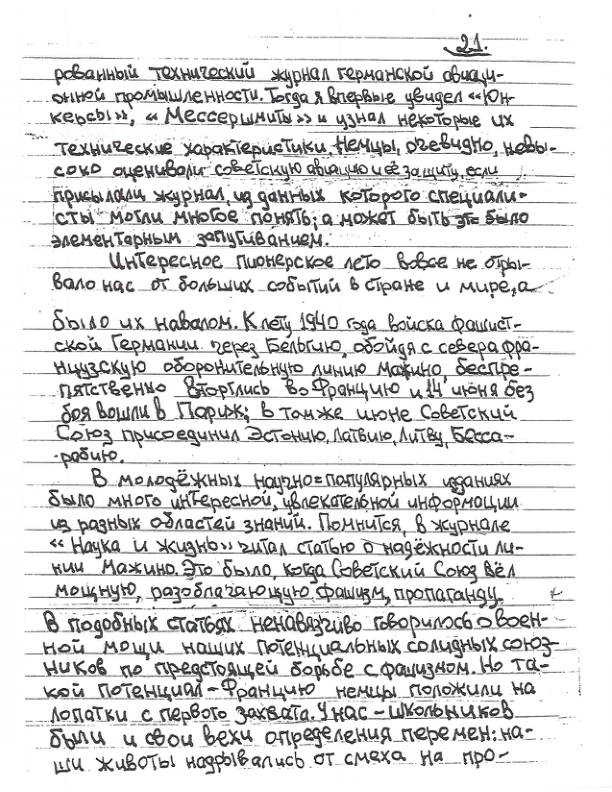 21.
рованный технический журнал германской авиаци-
онной промышленности. Тогда я впервые увидел «Юн-
керсы», «Мессершмиты» и узнал некоторые их
технические характеристики. Немцы, очевидно, невы-
соко оценивали советскую авиацию и её защиту, если
присылали журнал, из данных которого специали-
сты могли многое понять; а может быть это было
элементарным запугиванием.
Интересное пионерское лето вовсе не отры-
вало нас от больших событий в стране и мире, а
было их навалом. К лету 1940 года войска фашист-
ской Германии через Бельгию, обойдя с севера фра-
нцузскую оборонительную линию Мажино, беспре-
пятственно вторглись во Францию и 14 июня без
боя вошли в Париж; в том же июне Советский
Союз присоединил Эстонию, Латвию, Литву, Бесса-
рабию.
В молодёжных научно=популярных изданиях
было много интересной, увлекательной информации
из разных областей знаний. Помнится, в журнале
«Наука и жизнь» читал статью о надёжности ли-
нии Мажино. Это было, когда Советский Союз вёл
мощную, разоблачающую фашизм, пропаганду.
В подобных статьях ненавязчиво говорилось о воен-
ной мощи наших потенциальных солидных союз-
ников по предстоящей борьбе с фашизмом. Но та-
кой потенциал - Францию немцы положили на
лопатки с первого захвата. У нас - школьников
были и свои вехи определения перемен: на-
ши животы надрывались от смеха на про-